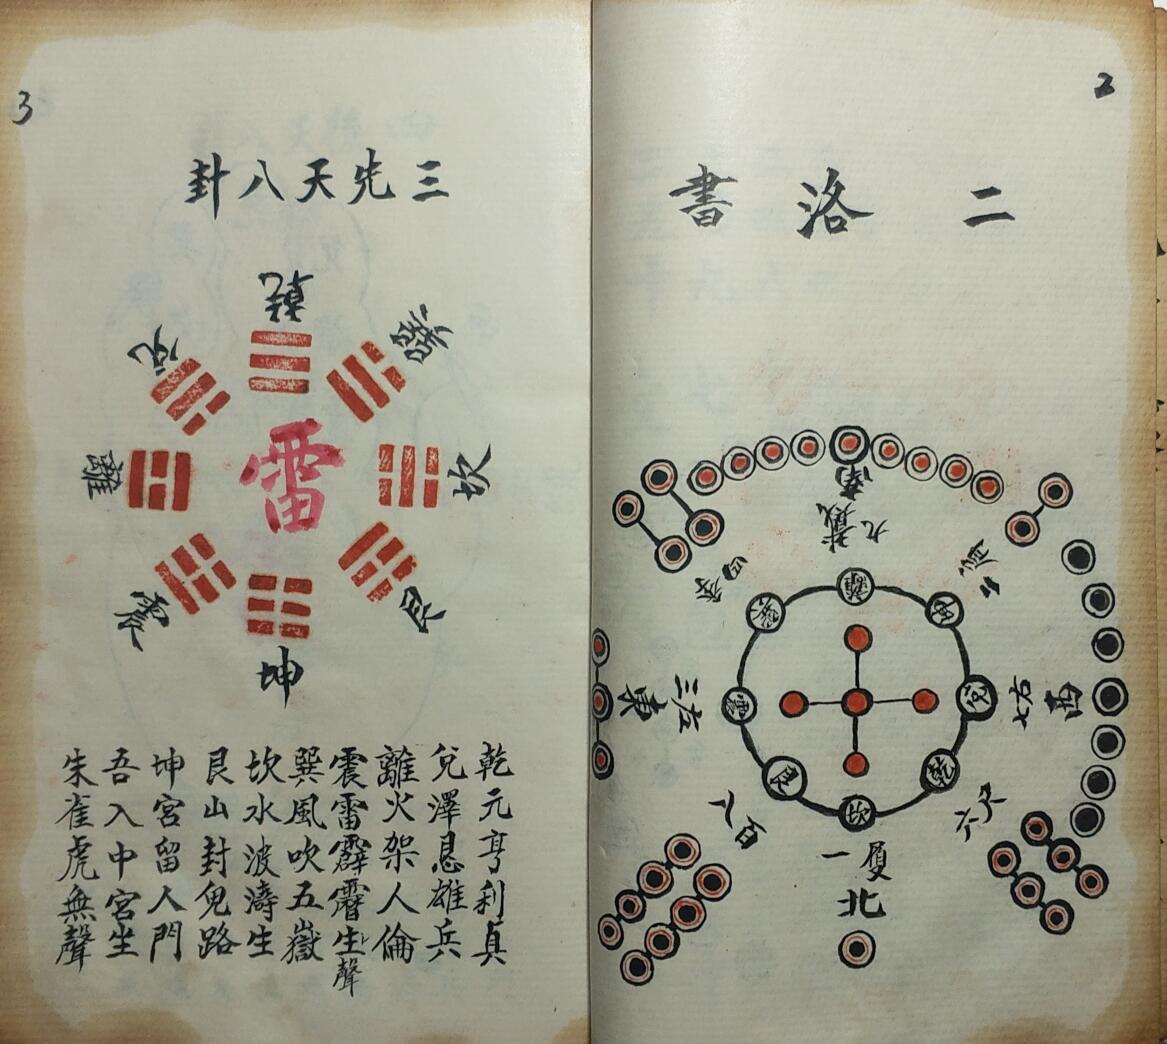 2
二洛書
南
九戴
二肩
四肩
西
七右
三左
東
一履
北
離
坤
兌
乾
坎
艮
震
巽
3
三先天八封
乾
兌
巽
離
坎
震
艮
坤
雷
乾元亨利貞
兌澤息雄兵
離火架人倫
震雷霹靂生聲
巽風吹五嶽
坎水波濤生
艮山封鬼路
坤宮留人門
吾入中宮坐
朱雀虎無聲